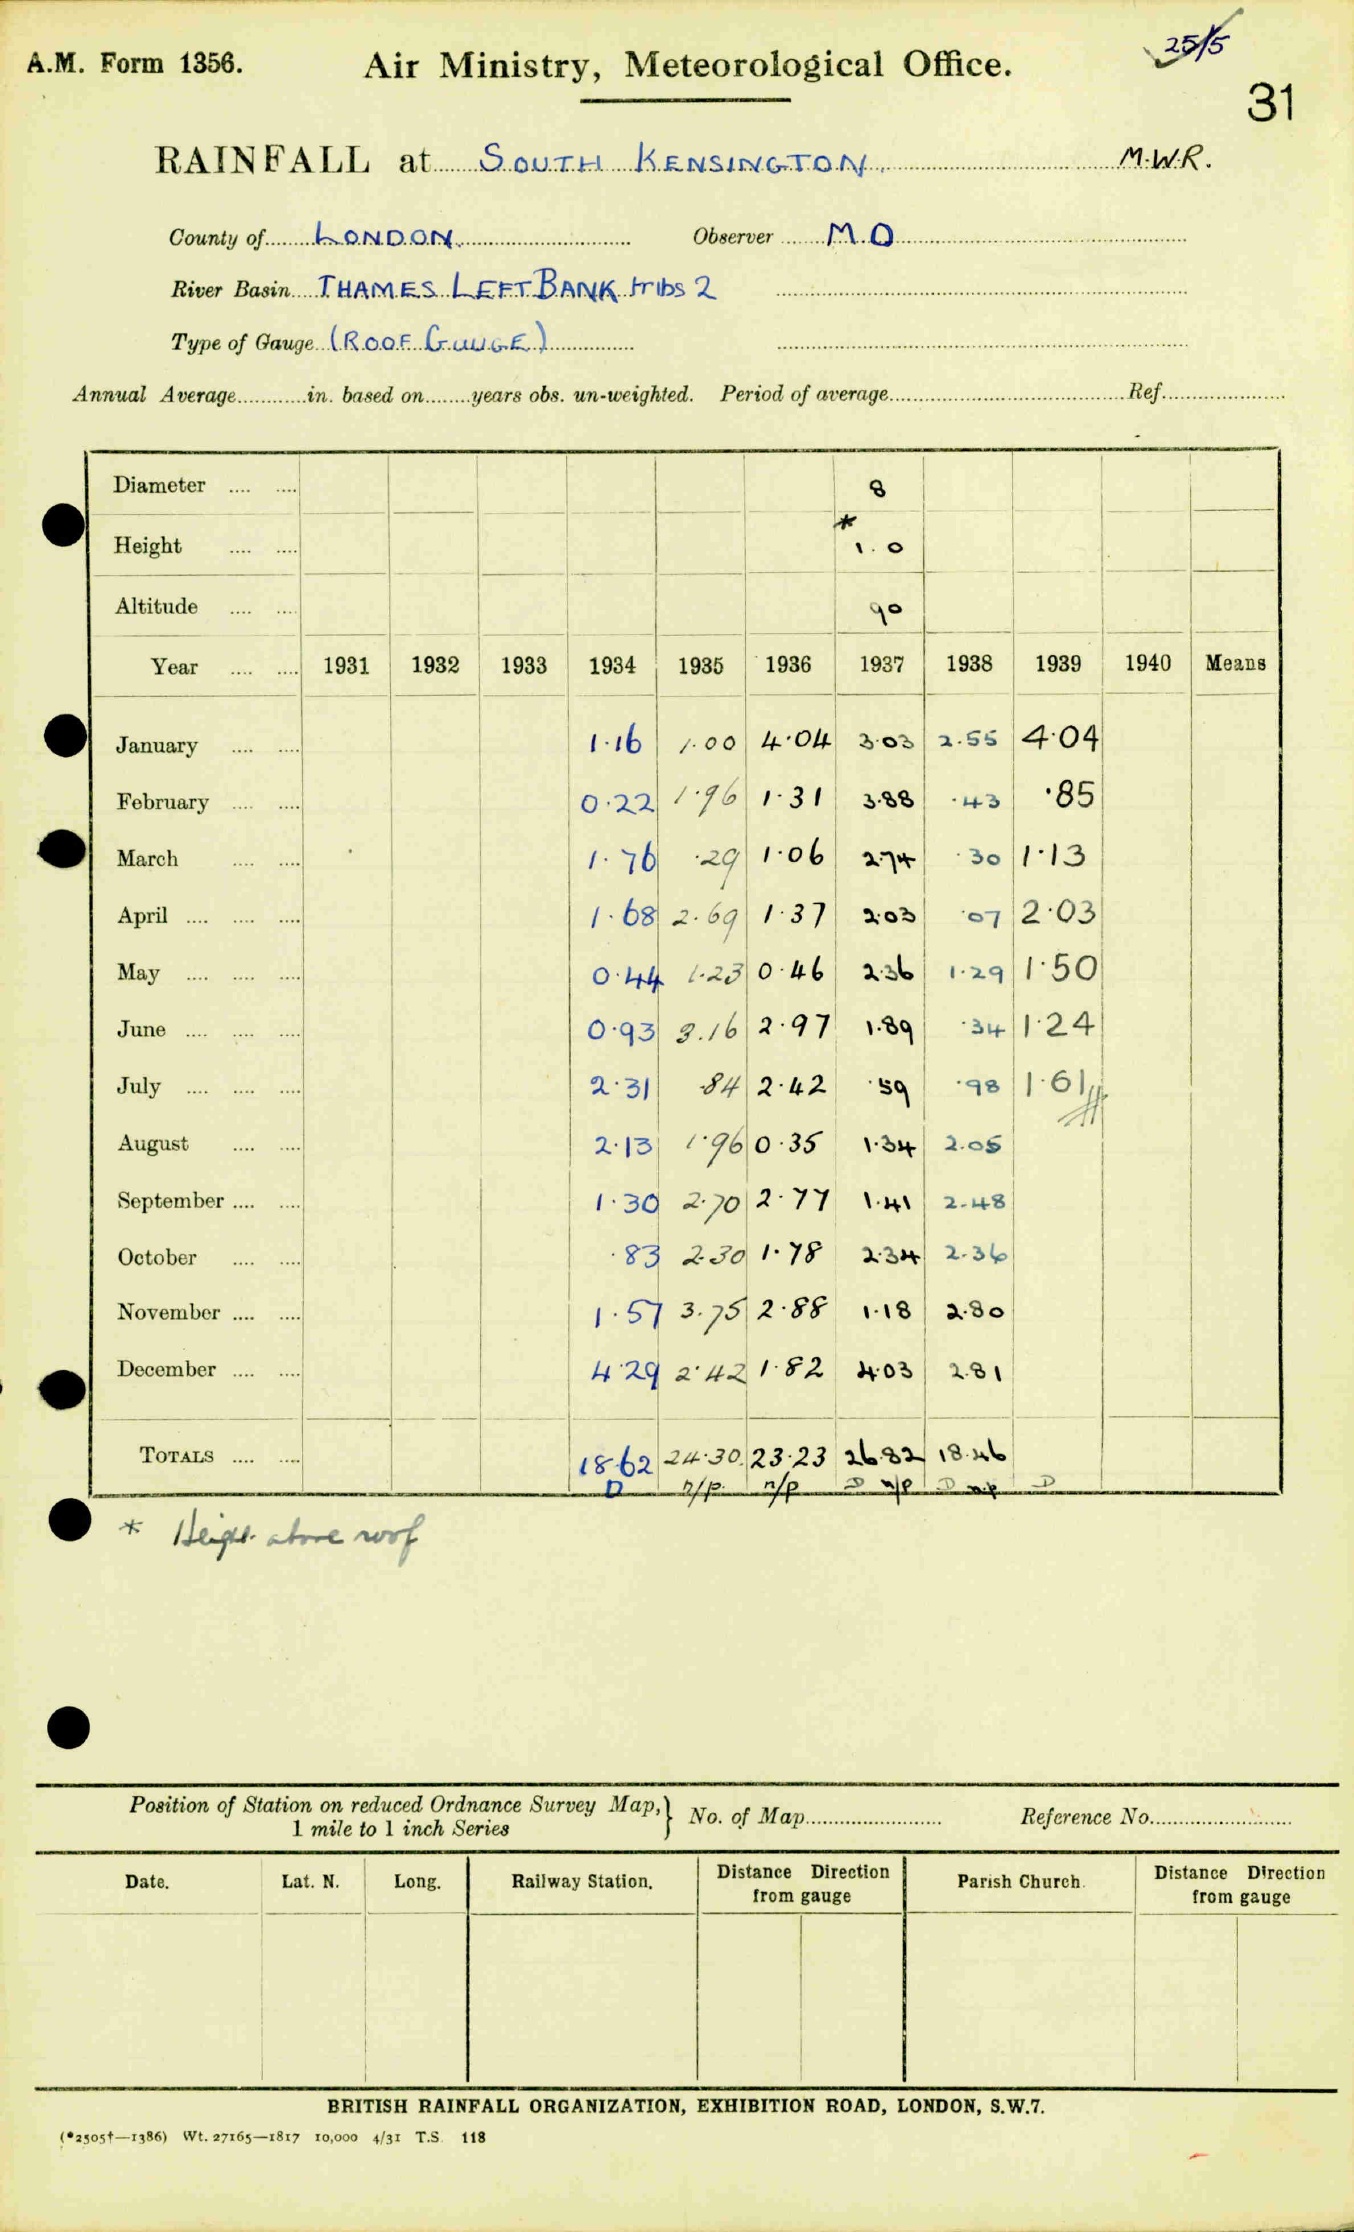 25/5
A.M. Form 1356. Air Ministry, Meteorological Office.
31
RAINFALL at SOUTH KENSINGTON. M.W.R.
County of LONDON. Observer M.O
River Basin THAMES LEFT BANK tribs 2
Type of Gauge (ROOF GAUGE)
Annual Average in. based on years obs. un-weighted. Period of average Ref.
Diameter .... .... 8
Height .... .... * 1.0
Altitude .... .... 90
Year .... .... 1931 1932 1933 1934 1935 1936 1937 1938 1939 1940 Means
January .... .... 1.16 1.00 4.04 3.03 2.55 4.04
February .... .... 0.22 1.96 1.31 3.88 .43 .85
March .... .... 1.76 .29 1.06 2.74 .30 1.13
April .... .... .... 1.68 2.69 1.37 2.03 .07 2.03
May .... .... .... 0.44 1.23 0.46 2.36 1.29 1.50
June .... .... .... 0.93 3.16 2.97 1.89 .34 1.24
July .... .... .... 2.31 .84 2.42 .59 .98 1.61
August .... .... 2.13 1.96 0.35 1.34 2.05
September .... .... 1.30 2.70 2.77 1.41 2.48
October .... .... .83 2.30 1.78 2.34 2.36
November .... .... 1.57 3.75 2.88 1.18 2.80
December .... .... 4.29 2.42 1.82 4.03 2.81
TOTALS .... .... 18.62 24.30 23.23 26.82 18.46
D n/p. n/p D n/p D n.p D
* Height above roof
Position of Station on reduced Ordnance Survey Map,} No. of Map Reference No.
1 mile to 1 inch Series
Date. Lat. N. Long. Railway Station. Distance Direction from gauge Parish Church. Distance Direction from gauge
BRITISH RAINFALL ORGANIZATION, EXHIBITION ROAD, LONDON, S.W.7.
(*2505†—1386) Wt. 27165—1817 10,000 4/31 T.S. 118